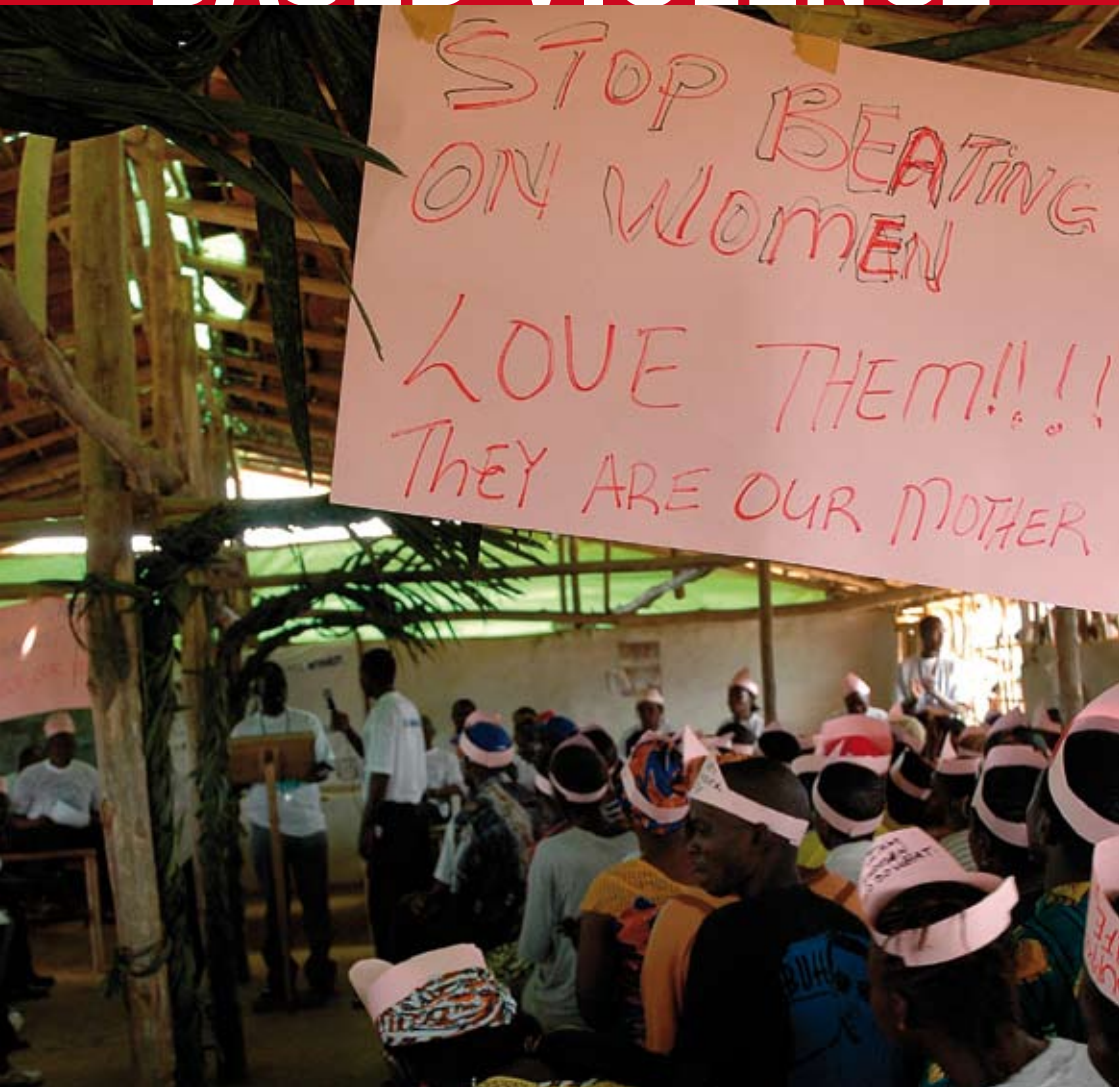 STOP BEATING
ON WOMEN
LOVE THEM!!!!
THEY ARE OUR MOTHER
BUH!